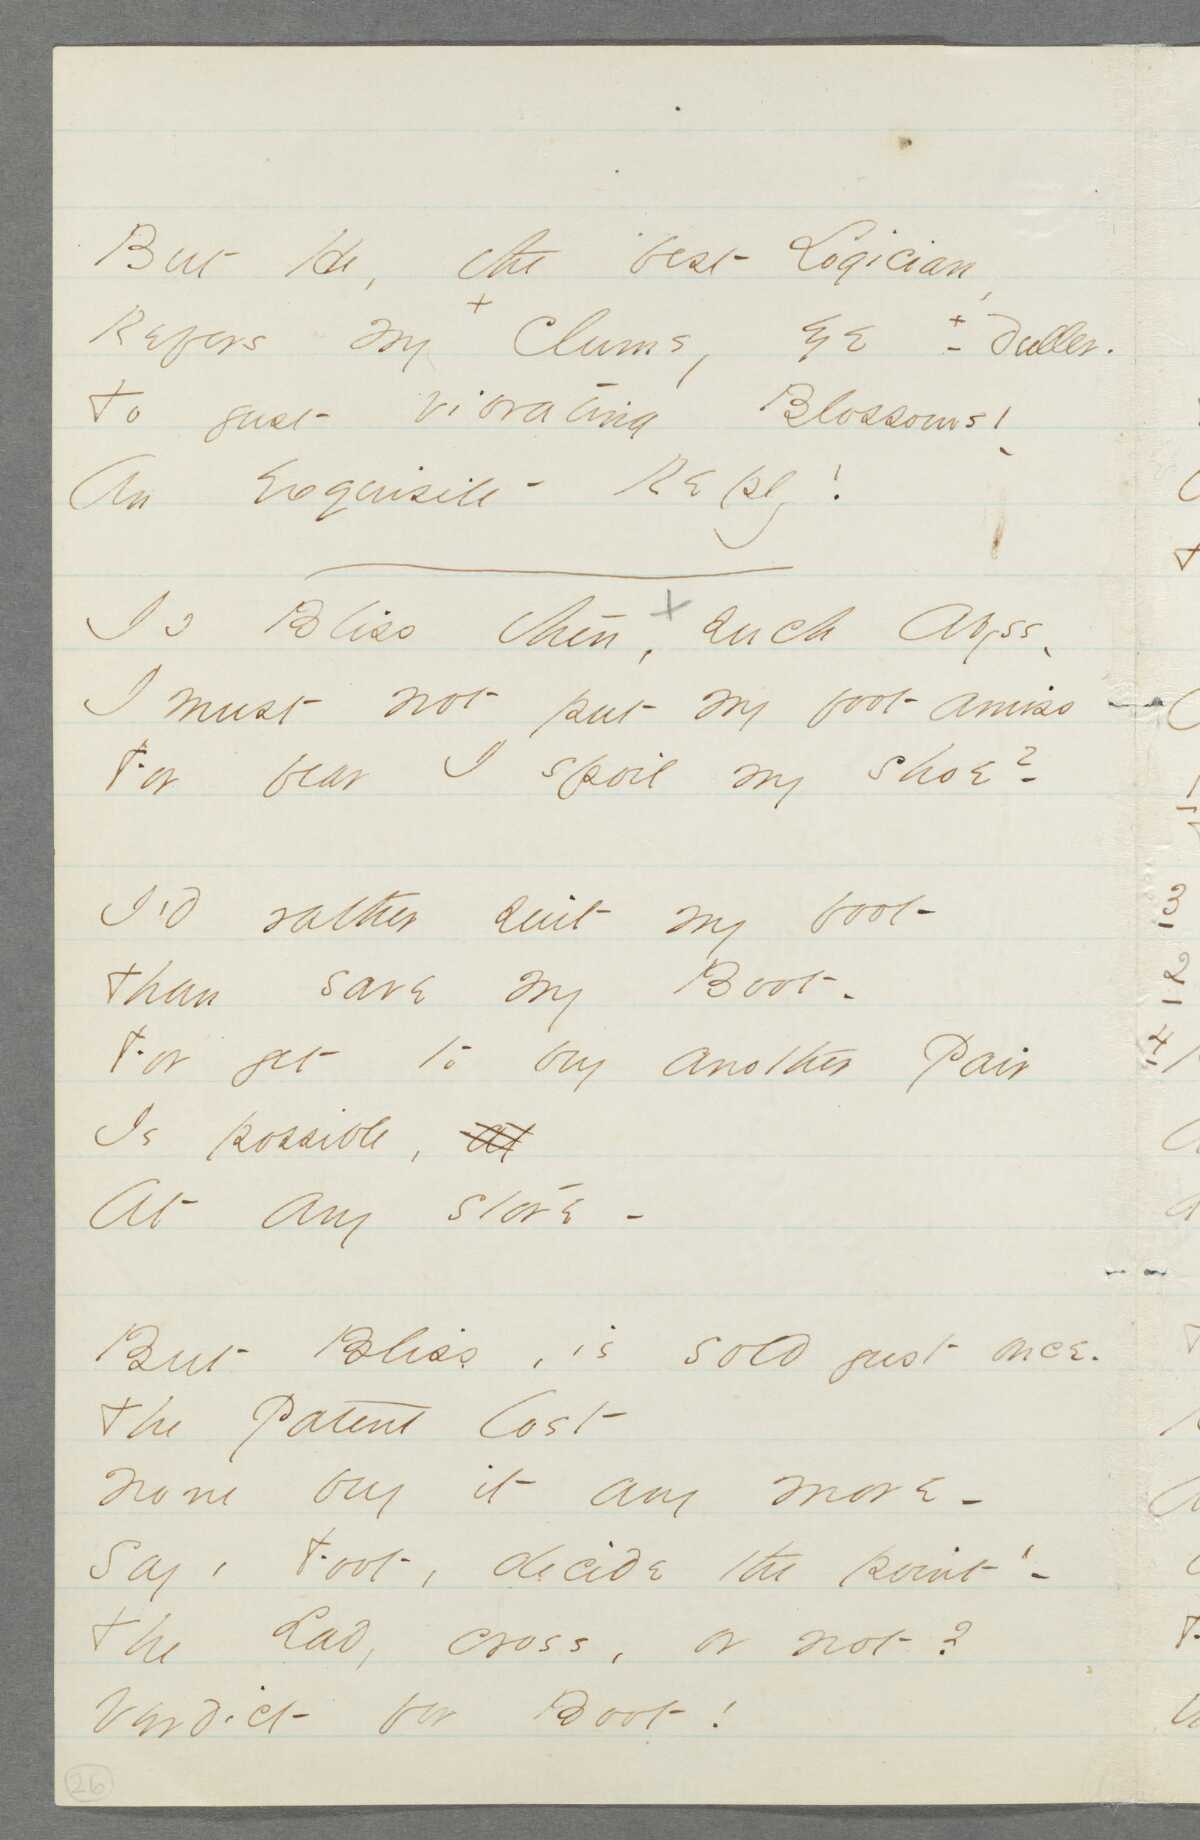 But He, the best Logician,
Refers my + Clumsy Eye + - Duller.
To just vibrating Blossoms!
An Exquisite Reply!
Is Bliss then, + such Abyss,
I must not put my foot amiss
For fear I spoil my shoe?-
I'd rather suit my foot
Than save my Boot.
For yet to buy another Pair
Is possible, at
At any store -
But Bliss, is sold just once.
The Patent lost
None buy it any more -
Say, Foot, decide the point!-
The Lady, cross, or not?
Verdict for Boot!
3
2
4
26